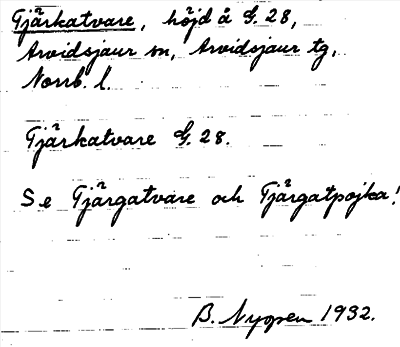 Tjårkatvare, höjd å G. 28,
Arvidsjaur sn, Arvidsjaur tg,
Norrb. l.
Tjårkatvare G. 28.
Se Tjårgatvare och Tjårgatpojka!
B. Nygren 1932.